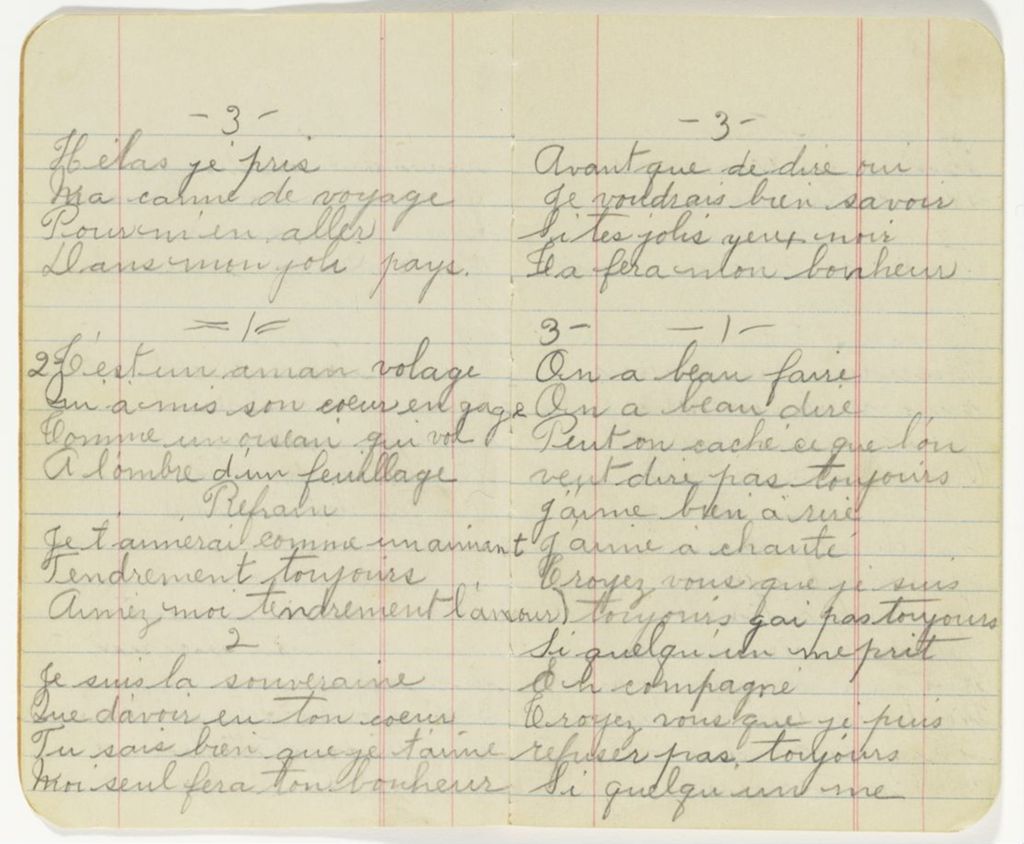 - 3 -
Hélas je pris
Ma canne de voyage
Pour m'en aller
Dans mon joli pays.
= 1 =
2 C'est un aman volage
Qui a mis son coeur en gage
Comme un oiseau qui vol
A l'ombre d'un feuillage
Refrain
Je t'aimerai comme un aimant
Tendrement toujours
Aimez moi tendrement l'amour)
2
Je suis la souveraine
Que d'avoir eu ton coeur
Tu sais bien que je t'aime
Moi seul fera ton bonheur
- 3 -
Avant que de dire oui
Je voudrais bien savoir
Si tes jolis yeux noir
Fera mon bonheur
3 - - 1 -
On a beau faire
On a beau dire
Peut on caché ce que l'on
veut dire pas toujours
J'aime bien a rire
J'aime a chanté
Croyez vous que je suis
toujours gai pas toujours
Si quelqu'un me prit
En compagne
Croyez vous que je puis
refuser pas toujours
Si quelqu un me